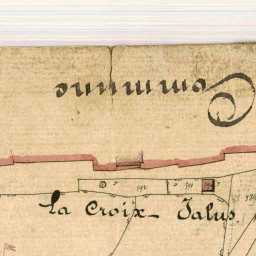 Commune
La Croix Jalus